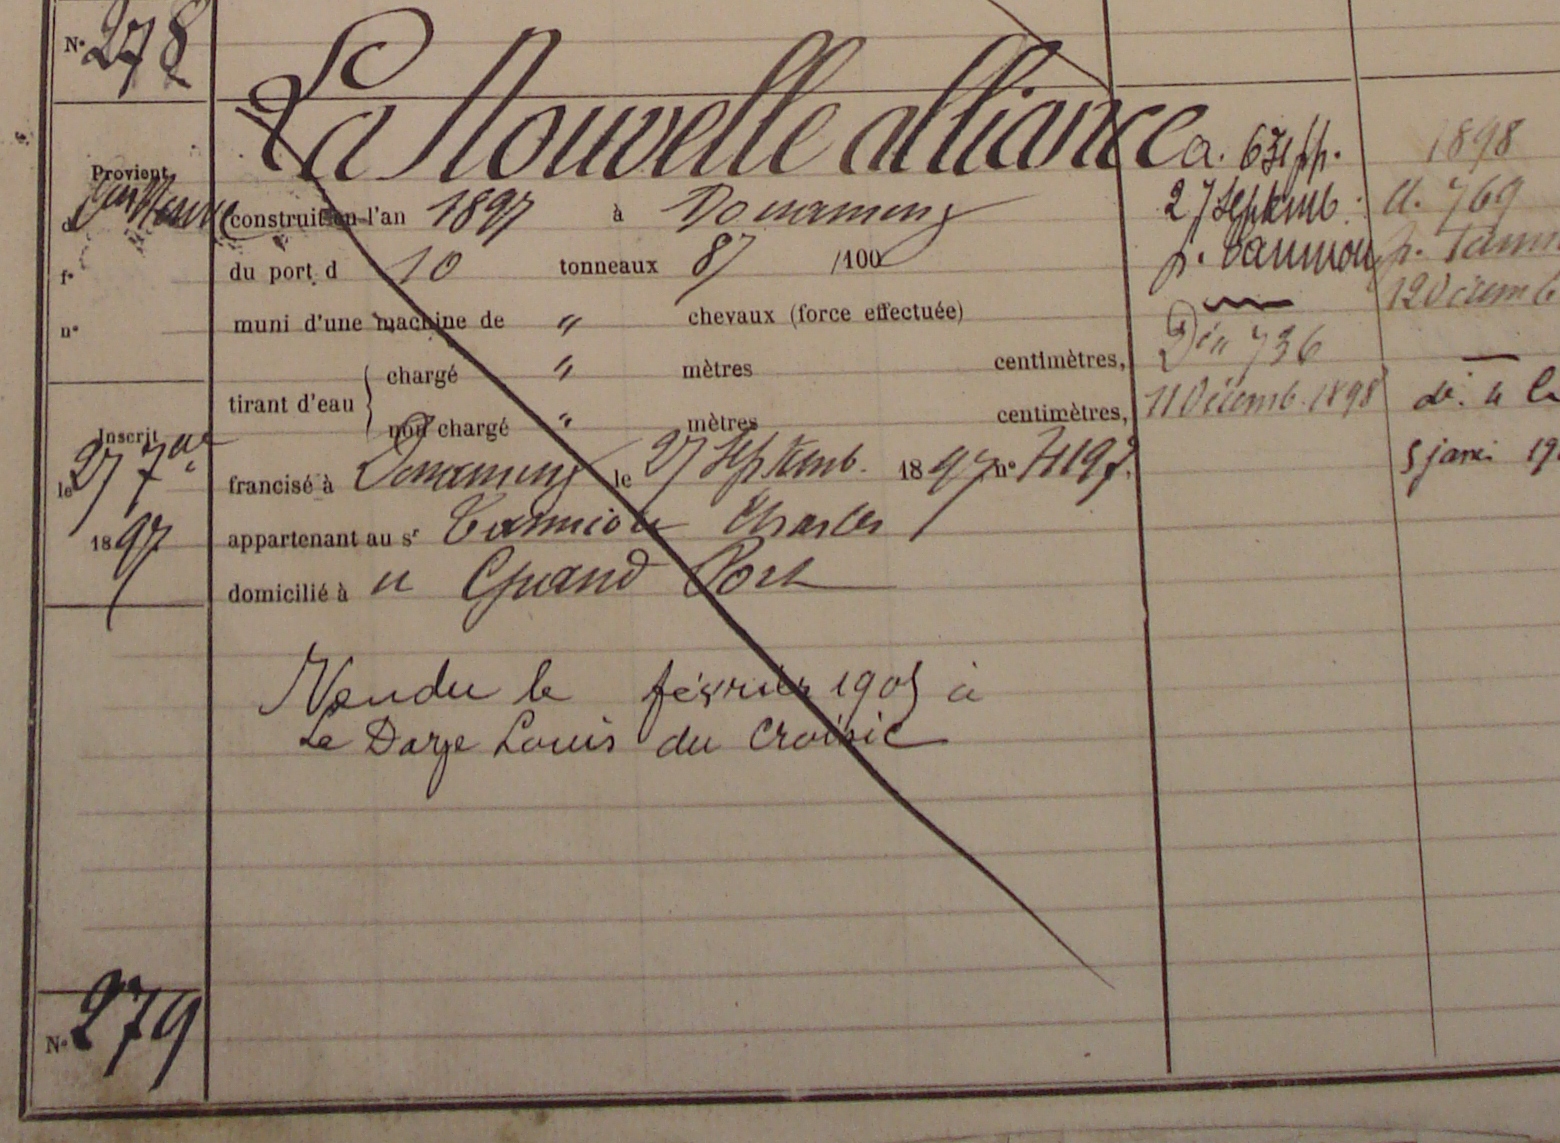 N° 278
La Nouvelle alliance
Provient
construit en l'an 1897 à Douarnenez
f° du port d 10 tonneaux 87 /100
n° muni d'une machine de " chevaux (force effectuée)
tirant d'eau
chargé " mètres centimètres,
non chargé " mètres centimètres,
Inscrit
le 27 7bre
1897
francisé à Douarnenez le 27 Septemb. 1897 n°
appartenant au sr Charles
domicilié à " Grand Port
Vendu le février 1905 à
Le Darje Louis du Croisic
N° 279
a.
27 Septemb.
p.
Don 736
11 Décemb. 1898
1898
a. 769
p.
12 Décemb
5 janv 19